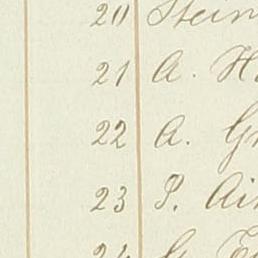 20 Stein
21 A. H
22 A. G
23 P. Ai
24 G. E